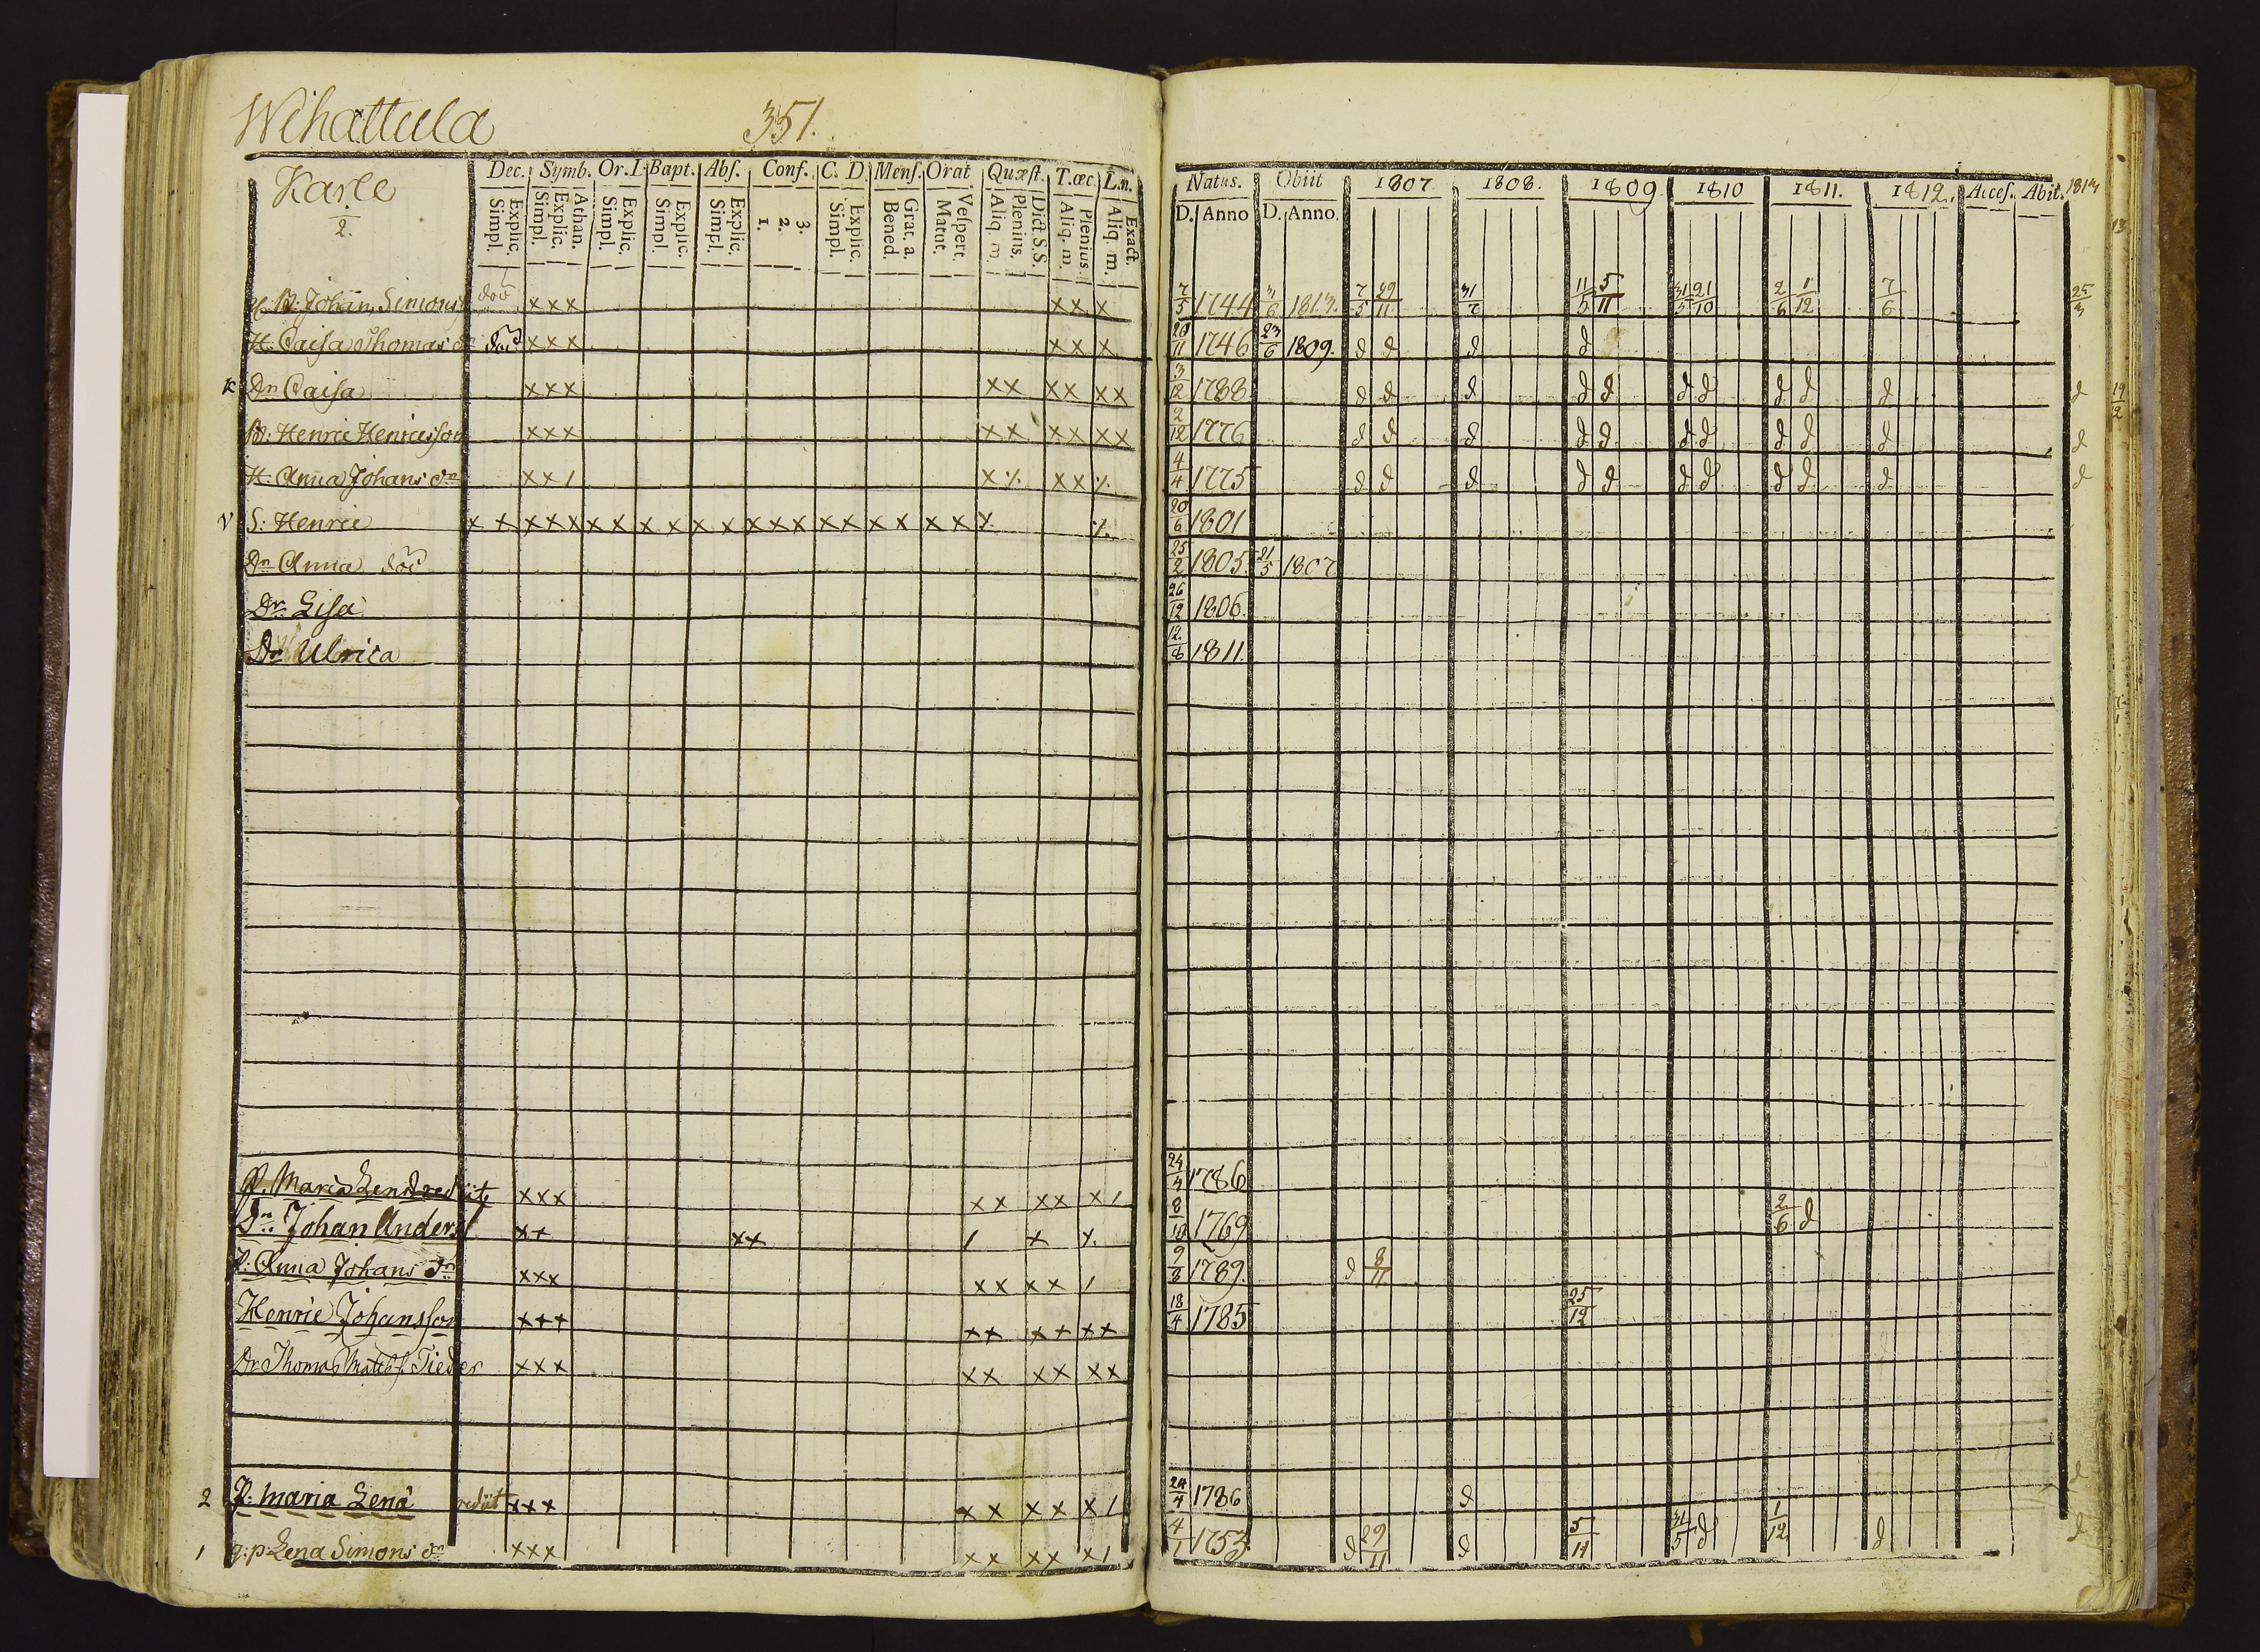 Wihattula 351.
Karle
2.
Dec. Symb. Or. I Bapt. Abſ. Conf. C. D. Menſ. Orat Quæſt. T.œc. L.n.
Explic. Simpl. Athan. Explic. Simpl. Explic. Simpl. Explic. Simpl. Explic. Simpl. 3. 2. 1. Explic. Simpl. Grat. a. Bened. Veſpert. Matut. Dict S.S. Plenius. Aliq. m. Plenius Aliq. m. Exact. Aliq. m.
Natus. Obiit 1807 1808. 1809. 1810 1811. 1812. Acceſ. Abit. 1813
D. Anno D. Anno.
B: Johan Simonss död xxx xx x 7/5 1744 3/6 1813. 7/5 29/11 31/7 11/5 5/11 31/5 21/10 2/6 1/12 7/6 25/3
H. Caisa Thomas dr död xxx xx x 20/11 1746 23/6 1809. d d d d
K Dr Caisa xxx xx xx xx 3/12 1788 d d d d d d d d d d d 19/2
B: Henric Henricsson xxx xx xx xx 2/12 1776 d d d d d d d d d d d
H. Anna Johans dr xx/ x ٪ xx ٪ 4/4 1775 d d d d d d d d d d d
S: Henric x x xxx xx x x x x xxx xx x x x x 20/6 1801
Dr Anna död 25/2 1805 21/5 1807
Dr Lisa 26/12 1806.
Dr Ulrica 12/8 1811.
P. Maria Lena rediit xxx xx xx x/ 24/4 1786
Dr. Johan Anders xx xx / x 8/10 1769 2/6 d
P: Anna Johans dr xxx xx xx / 9/8 1789. d 8/11
Henric Johansson xxx xx xx xx 18/4 1785 25/12
Dr Thomas Matts. Tieder xxx xx xx xx
2 P: Maria Lena rediit xxx xx xx x/ 24/4 1786 d d
1 g:p Lena Simons dr xxx xx xx x/ 4/1 1753 d 29/11 d 5/11 31/5 d 1/12 d d